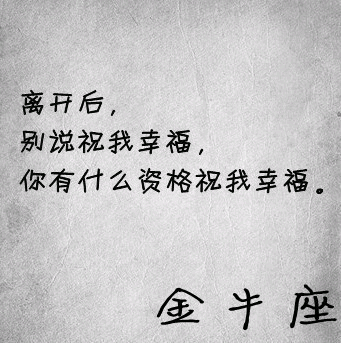 离开后，
别说祝我幸福，
你有什么资格祝我幸福。
金牛座